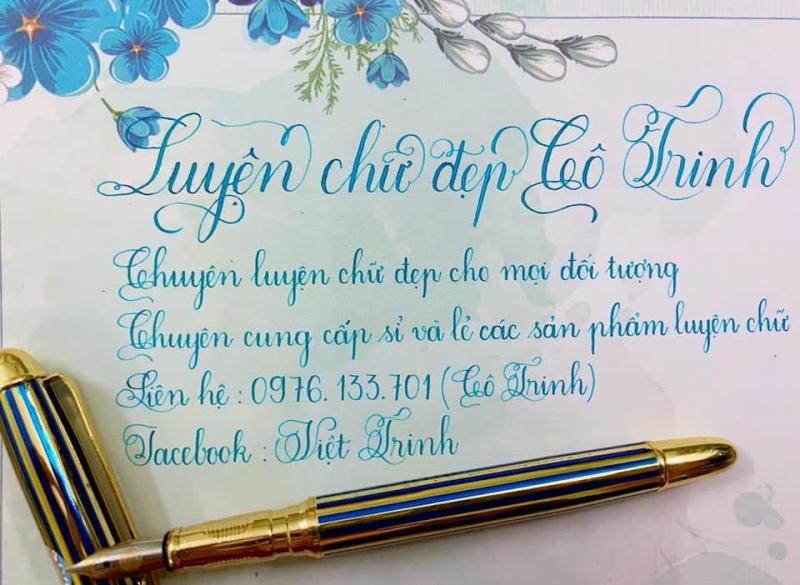 Luyện chữ đẹp Cô Trinh
Chuyên luyện chữ đẹp cho mọi đối tượng
Chuyên cung cấp sỉ và lẻ các sản phẩm luyện chữ
Liên hệ : 0976.133.701 (Cô Trinh)
Facebook : Việt Trinh